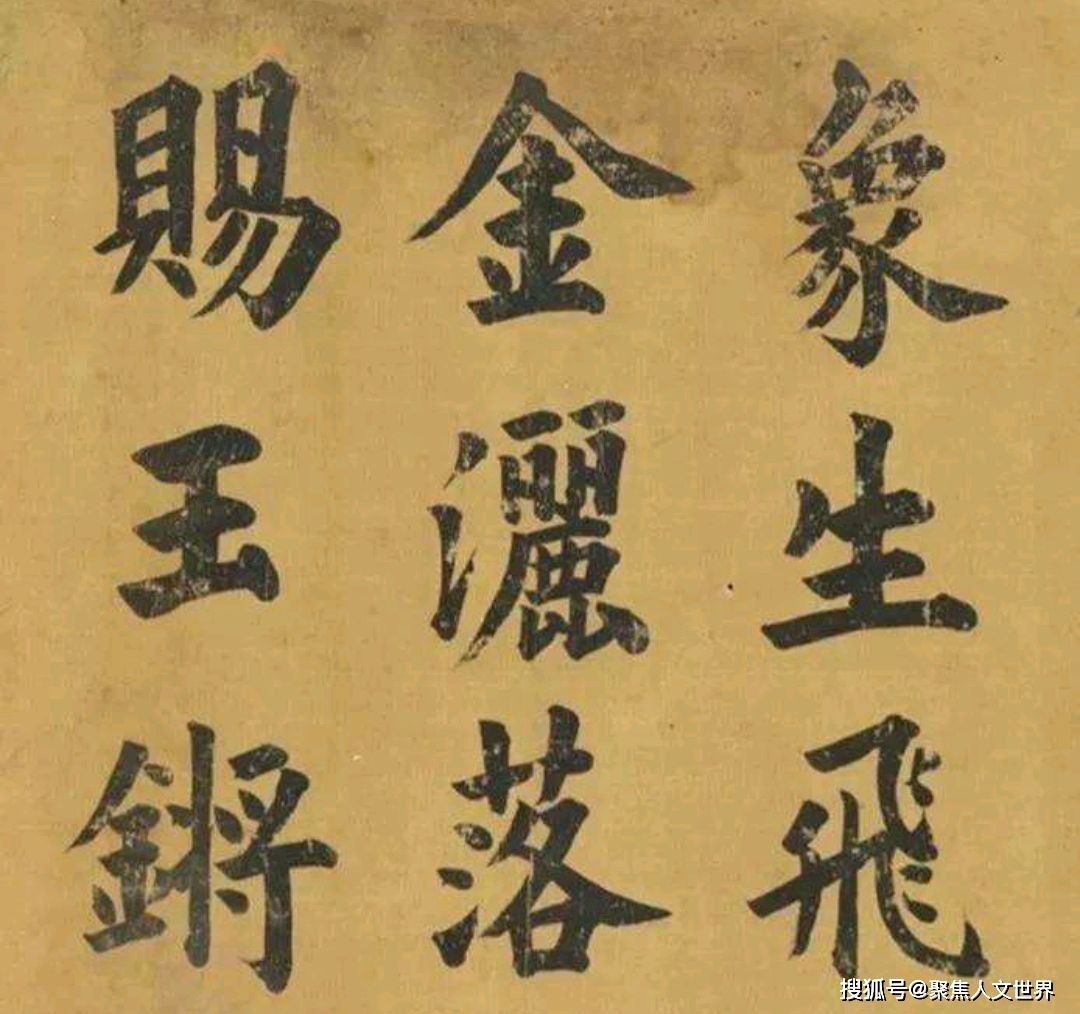 象生飛
金灑落
賜王鏘
搜狐号@聚焦人文世界